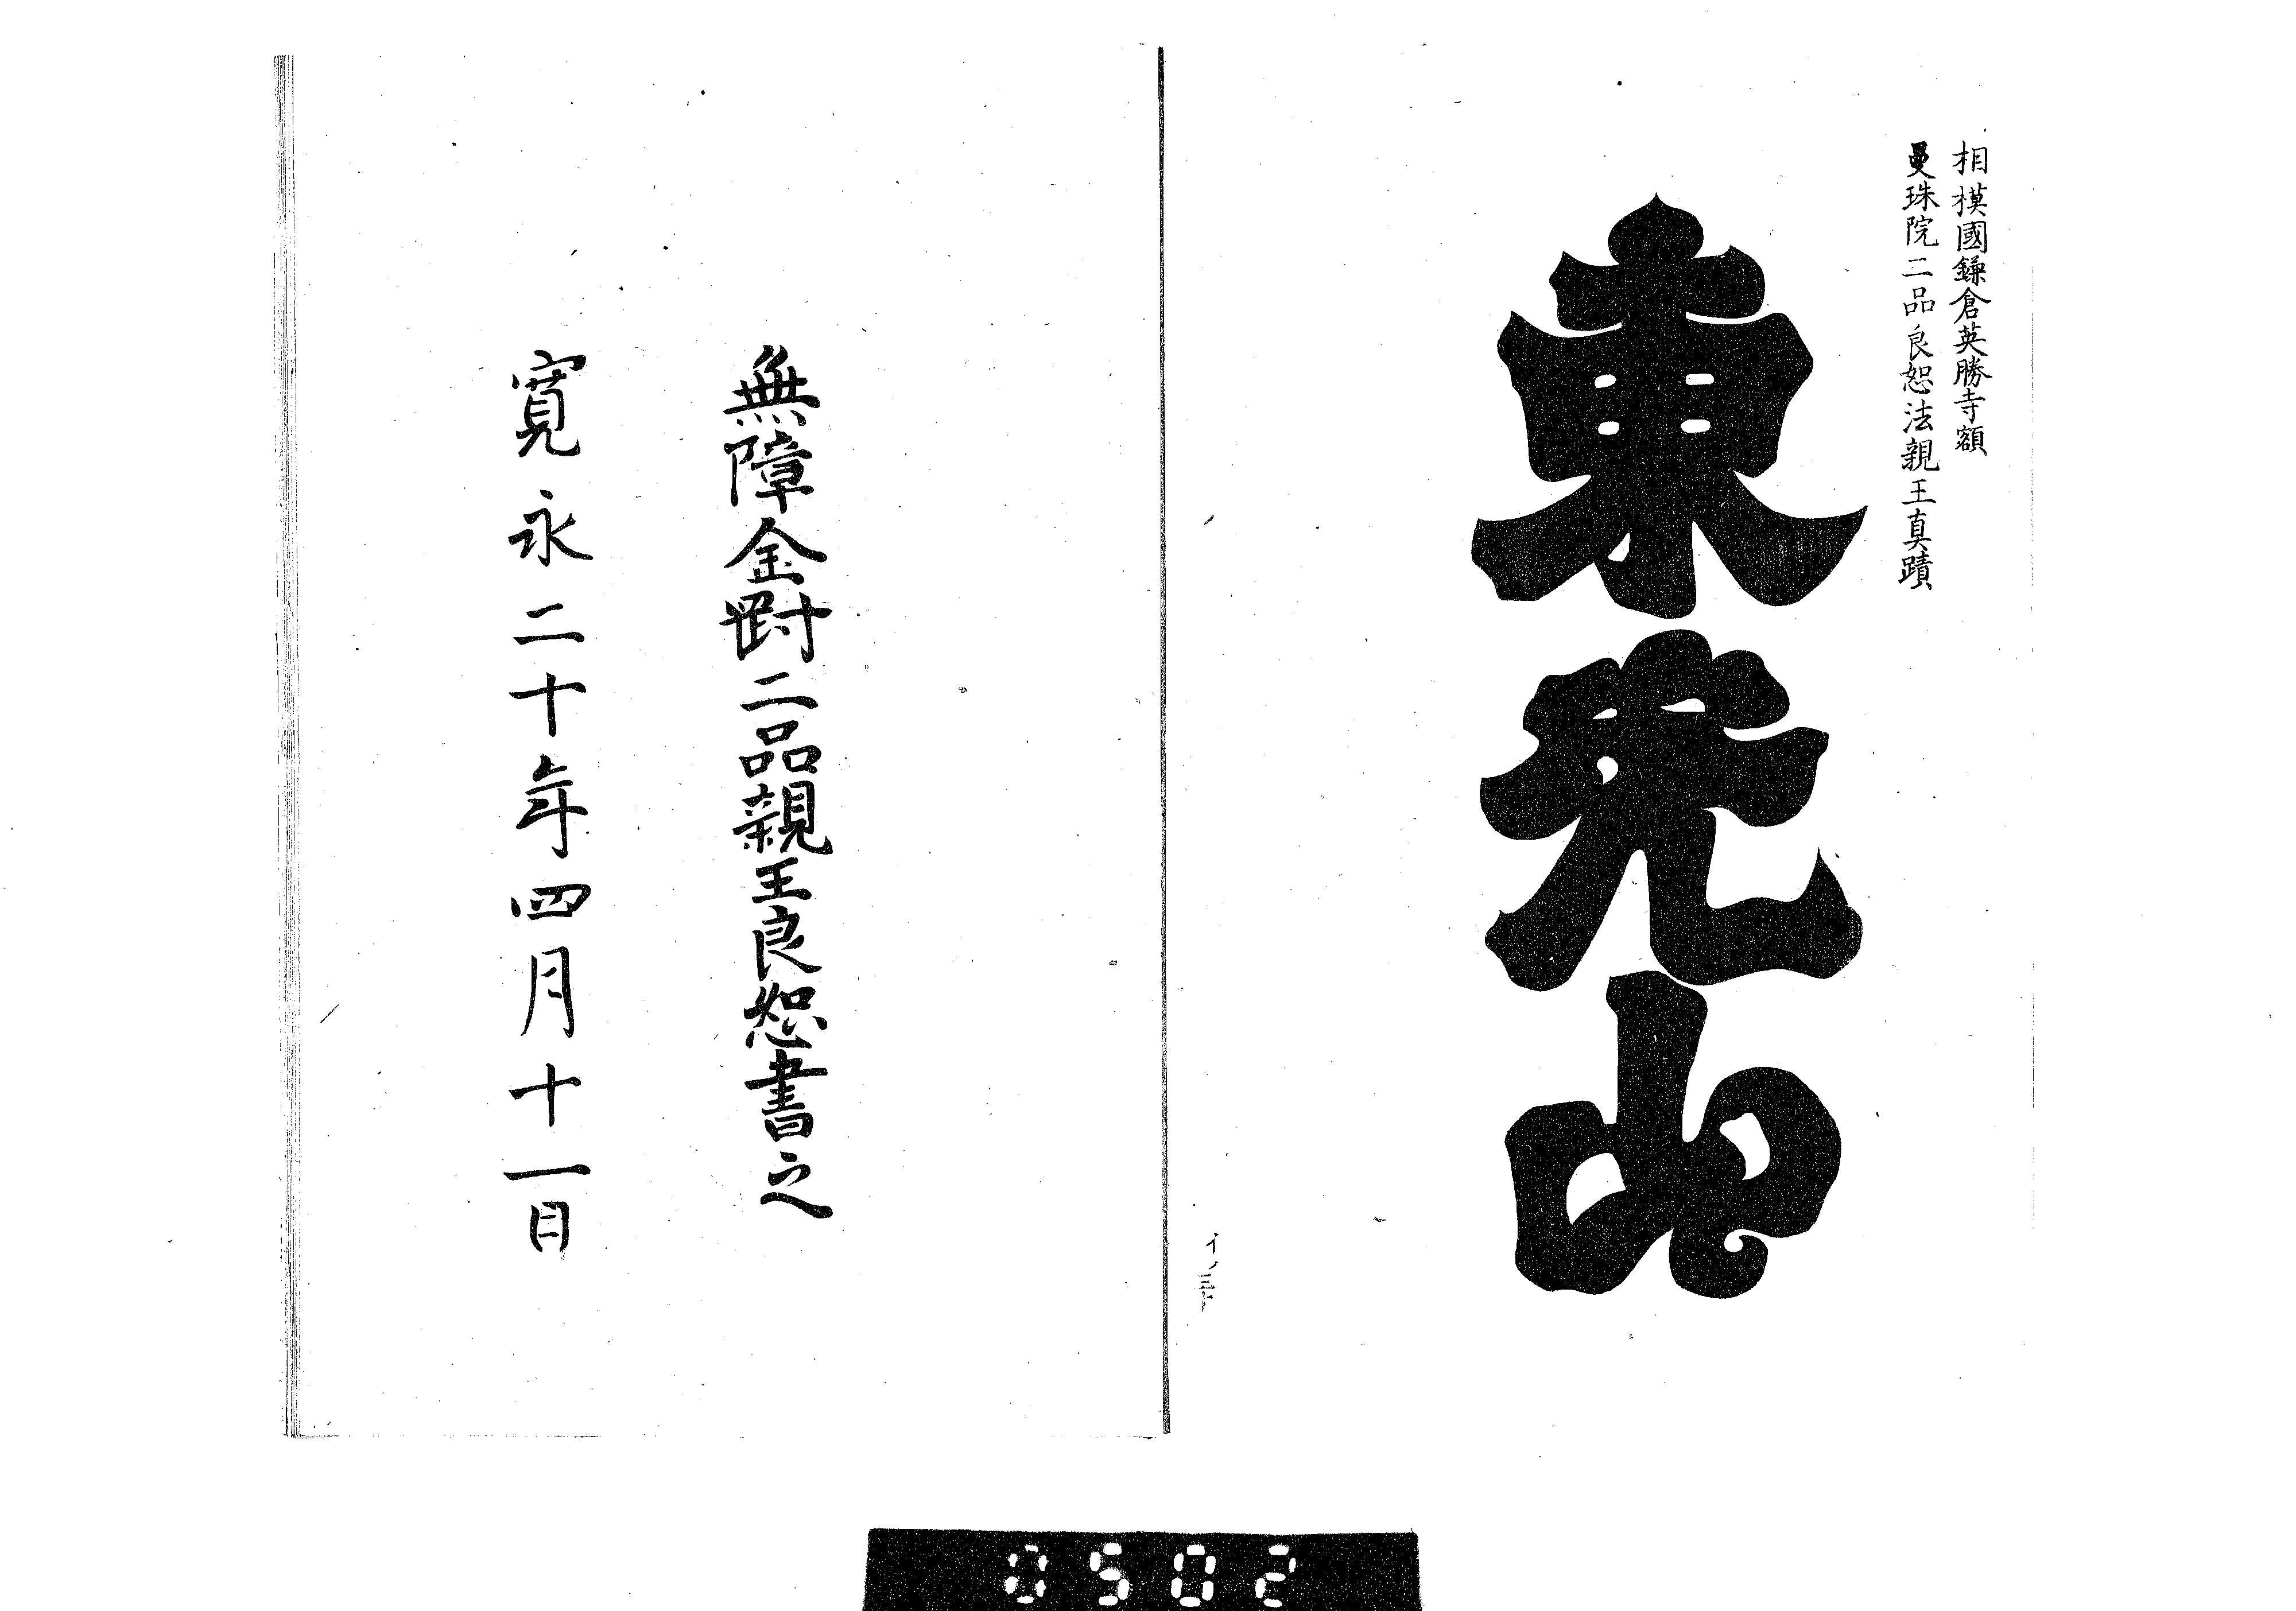 相模國鎌倉英勝寺額
曼珠院二品良恕法親王真蹟
東光山
無障金剛二品親王良恕書之
寛永二十年四月十一日
0502